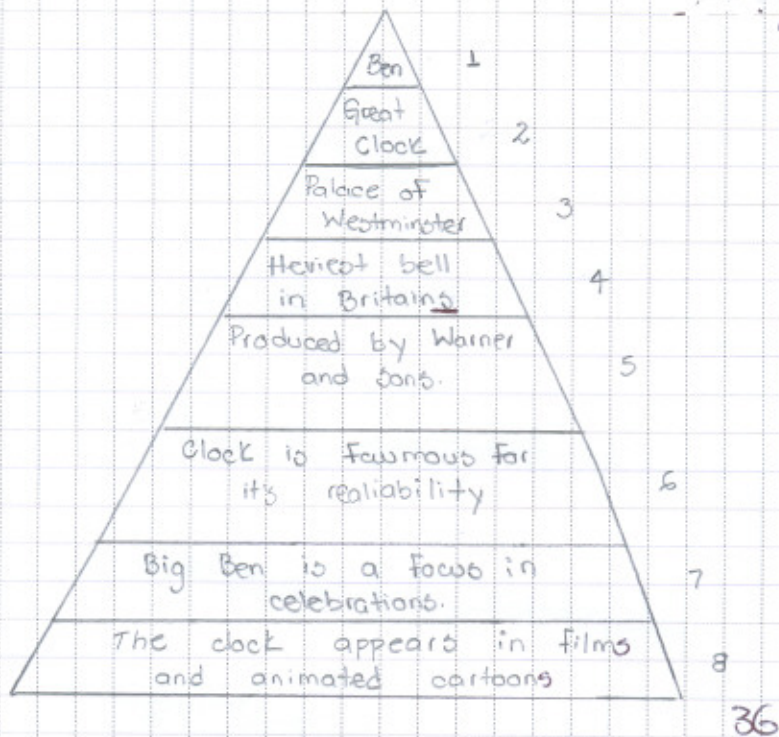 Ben 1
Great
Clock 2
Palace of
Westminster 3
Heviest bell
in Britains 4
Produced by Warner
and sons. 5
Clock is fawmous for
it's realiability 6
Big Ben is a focus in
celebrations. 7
The clock appears in films
and animated cartoons 8
36